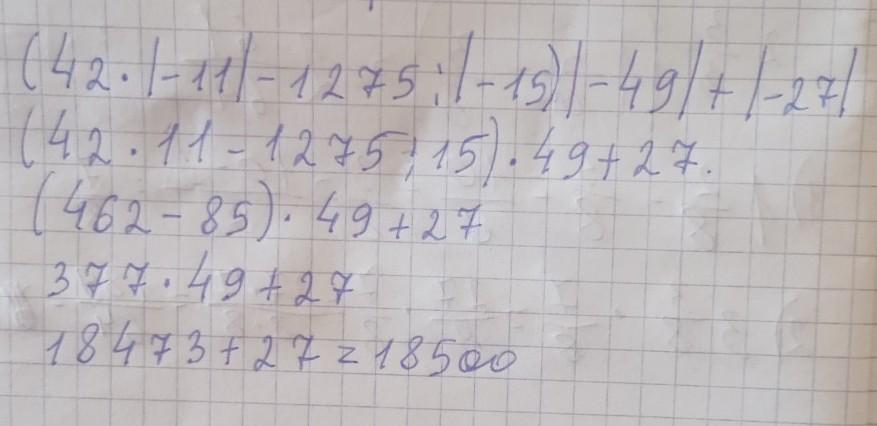 (42·|-11|-1275:|-15)|-49|+|-27|
(42·11-1275:15)·49+27.
(462-85)·49+27
377·49+27
18473+27=18500